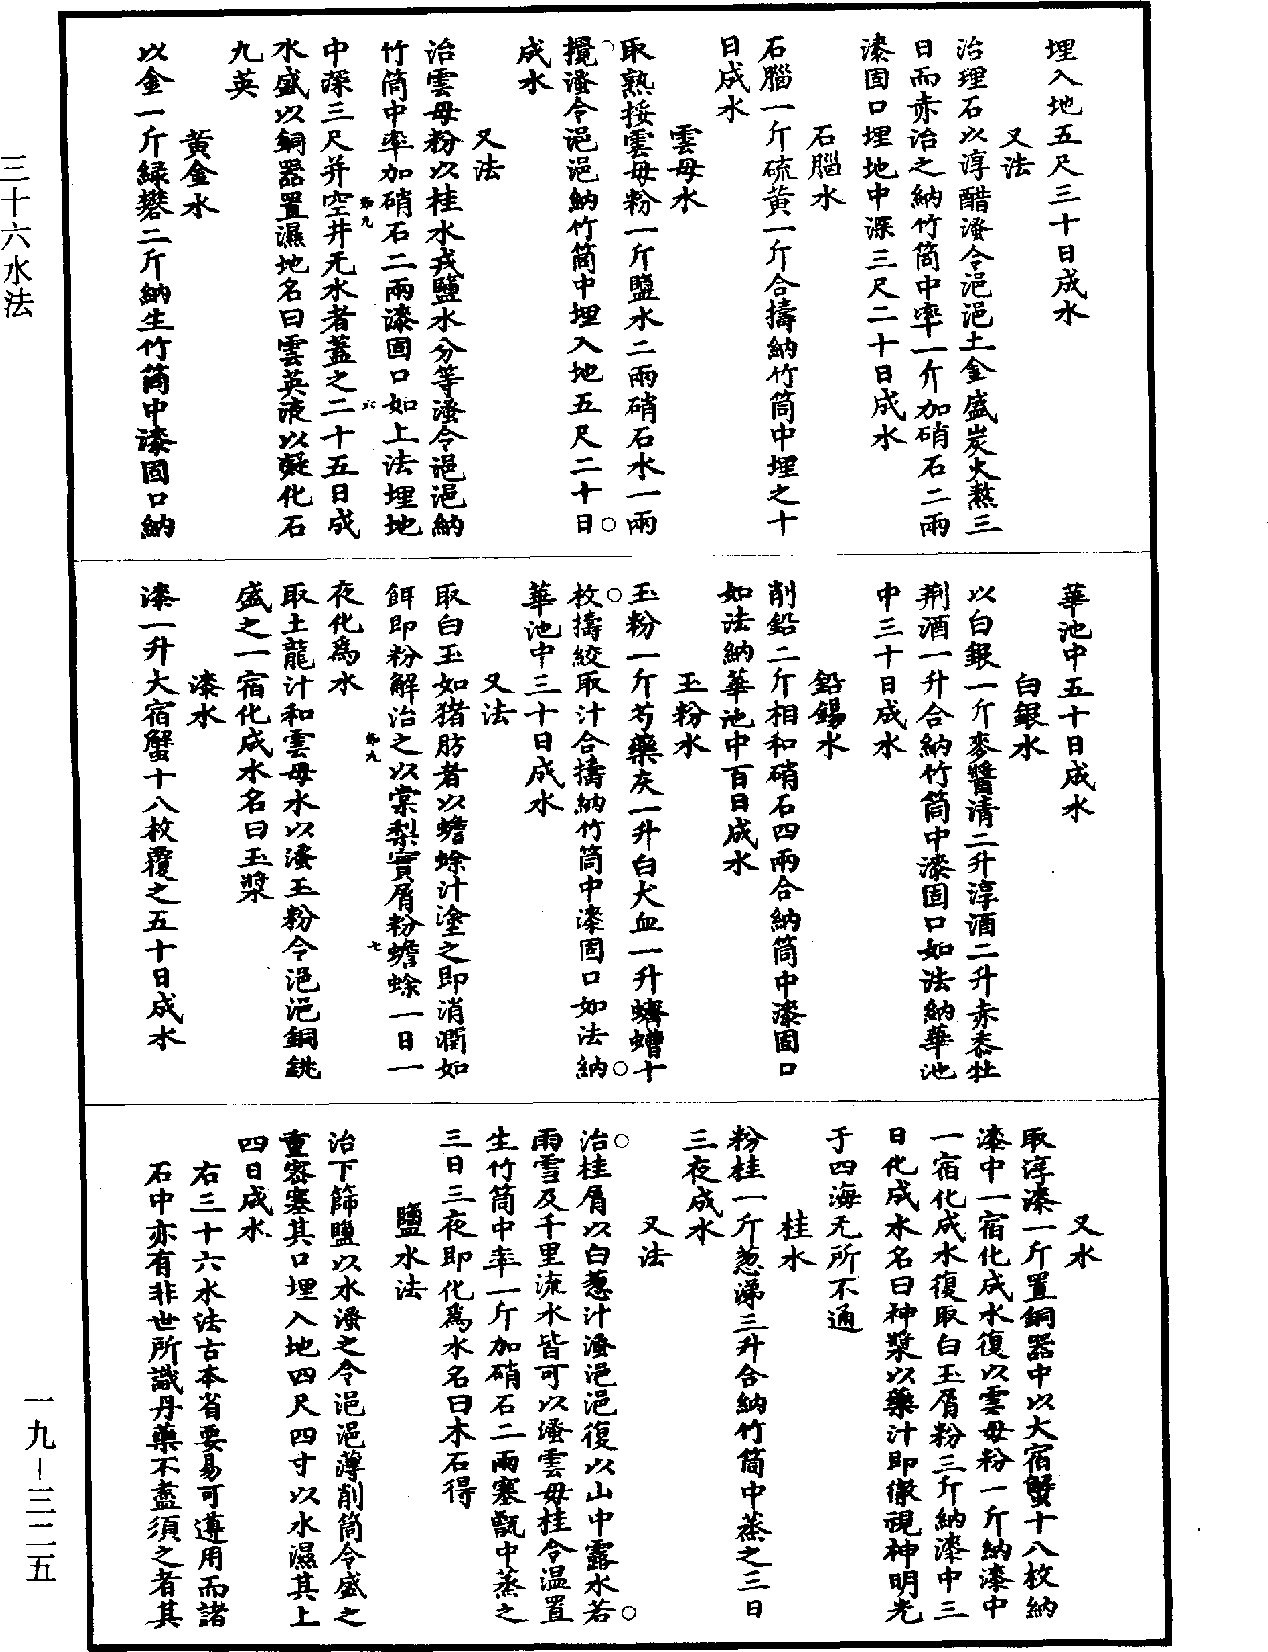 埋入地五尺三十日成水
又法
治理石以淳醋溲令浥浥土金盛炭火熬三
日而赤治之納竹筒中率一斤加硝石二兩
漆固口埋地中深三尺二十日成水
石腦水
石腦一斤硫黃一斤合擣納竹筒中埋之十
日成水
雲母水
取熟挼雲母粉一斤鹽水二兩硝石水一兩
攪溲令浥浥納竹筒中埋入地五尺二十日
成水
又法
治雲母粉以桂水戎鹽水分等溲令浥浥納
竹筒中率加硝石二兩漆固口如上法埋地
中深三尺并空井无水者蓋之二十五日成
水盛以銅器置濕地名曰雲英液以凝化石
九英
黃金水
以金一斤綠礬二斤納生竹筒中漆固口納
華池中五十日成水
白銀水
以白銀一斤麥醬清二升淳酒二升赤黍牡
荆酒一升合納竹筒中漆固口如法納華池
中三十日成水
鉛錫水
削鉛二斤相和硝石四兩合納筒中漆固口
如法納華池中百日成水
玉粉水
玉粉一斤芍藥灰一升白犬血一升蠐螬十
枚擣絞取汁合擣納竹筒中漆固口如法納
華池中三十日成水
又法
取白玉如猪肪者以蟾蜍汁塗之即消潤如
餌即粉解治之以棠梨實屑粉蟾蜍一日一
夜化爲水
取土龍汁和雲母水以溲玉粉令浥浥銅銚
盛之一宿化成水名曰玉漿
漆水
漆一升大宿蟹十八枚覆之五十日成水
又水
取淳漆一斤置銅器中以大宿蟹十八枚納
漆中一宿化成水復以雲母粉一斤納漆中
一宿化成水復取白玉屑粉三斤納漆中三
日化成水名曰神漿以藥汁即徹視神明光
于四海无所不通
桂水
粉桂一斤葱涕三升合納竹筒中蒸之三日
三夜成水
又法
治桂屑以白葱汁溲浥浥復以山中露水若
雨雪及千里流水皆可以溲雲母桂令温置
生竹筒中率一斤加硝石二兩塞甑中蒸之
三日三夜即化爲水名曰木石得
鹽水法
治下篩鹽以水溲之令浥浥薄削筒令盛之
重密塞其口埋入地四尺四寸以水濕其上
四日成水
右三十六水法古本省要易可遵用而諸
石中亦有非世所識丹藥不盡須之者其
三十六水法
一九—三二五